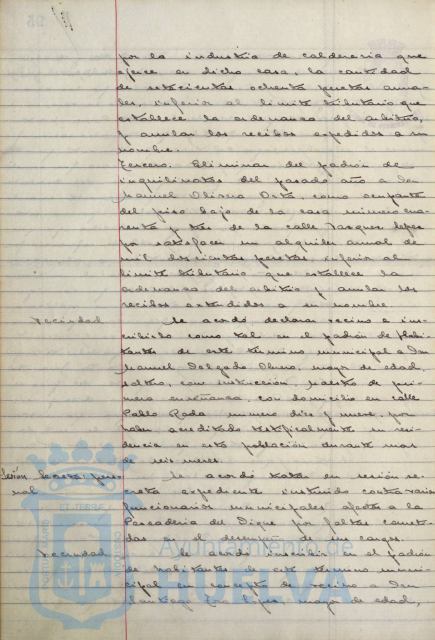 por la industria de caldereria que
ejerce en dicha casa, la cantidad
de setecientas ochenta pesetas anua-
les, inferior al limite tributario que
establece la ordenanza del arbitrio,
y anular los recibos expedidos a su
nombre.
Tercero. Eliminar del padrón de
inquilinatos del pasado año a Don
Manuel Olivera Orta, como ocupante
del piso bajo de la casa número cua-
renta y tres de la calle Vazquez Lopez
por satisfacer un alquiler anual de
mil doscientas pesetas, inferior al
limite tributario que establece la
ordenanza del arbitrio y anular los
recibos extendidos a su nombre.
Vecindad Se acordó declarar vecino e ins-
cribirlo como tal en el padrón de Habi-
tantes de este término municipal a Don
Manuel Delgado, mayor de edad,
soltero, con instrucción, maestro de pri-
mera enseñanza, con domicilio en calle
Pablo Rada número diez y nueve, por
haber acreditado testificalmente su resi-
dencia en esta población durante mas
de seis meses.
Sesión secreta: perso- Se acordó tratar en sesión se-
nal creta expediente instruido contra varios
funcionarios municipales afectos a la
Pescaderia del Dique por faltas cometi-
das en el desempeño de sus cargos.
Vecindad Se acordó inscribir en el padrón
de habitantes de este término muni-
cipal en concepto de vecino a Don
Santiago López, mayor de edad,
Ayuntamiento de
HUELVA